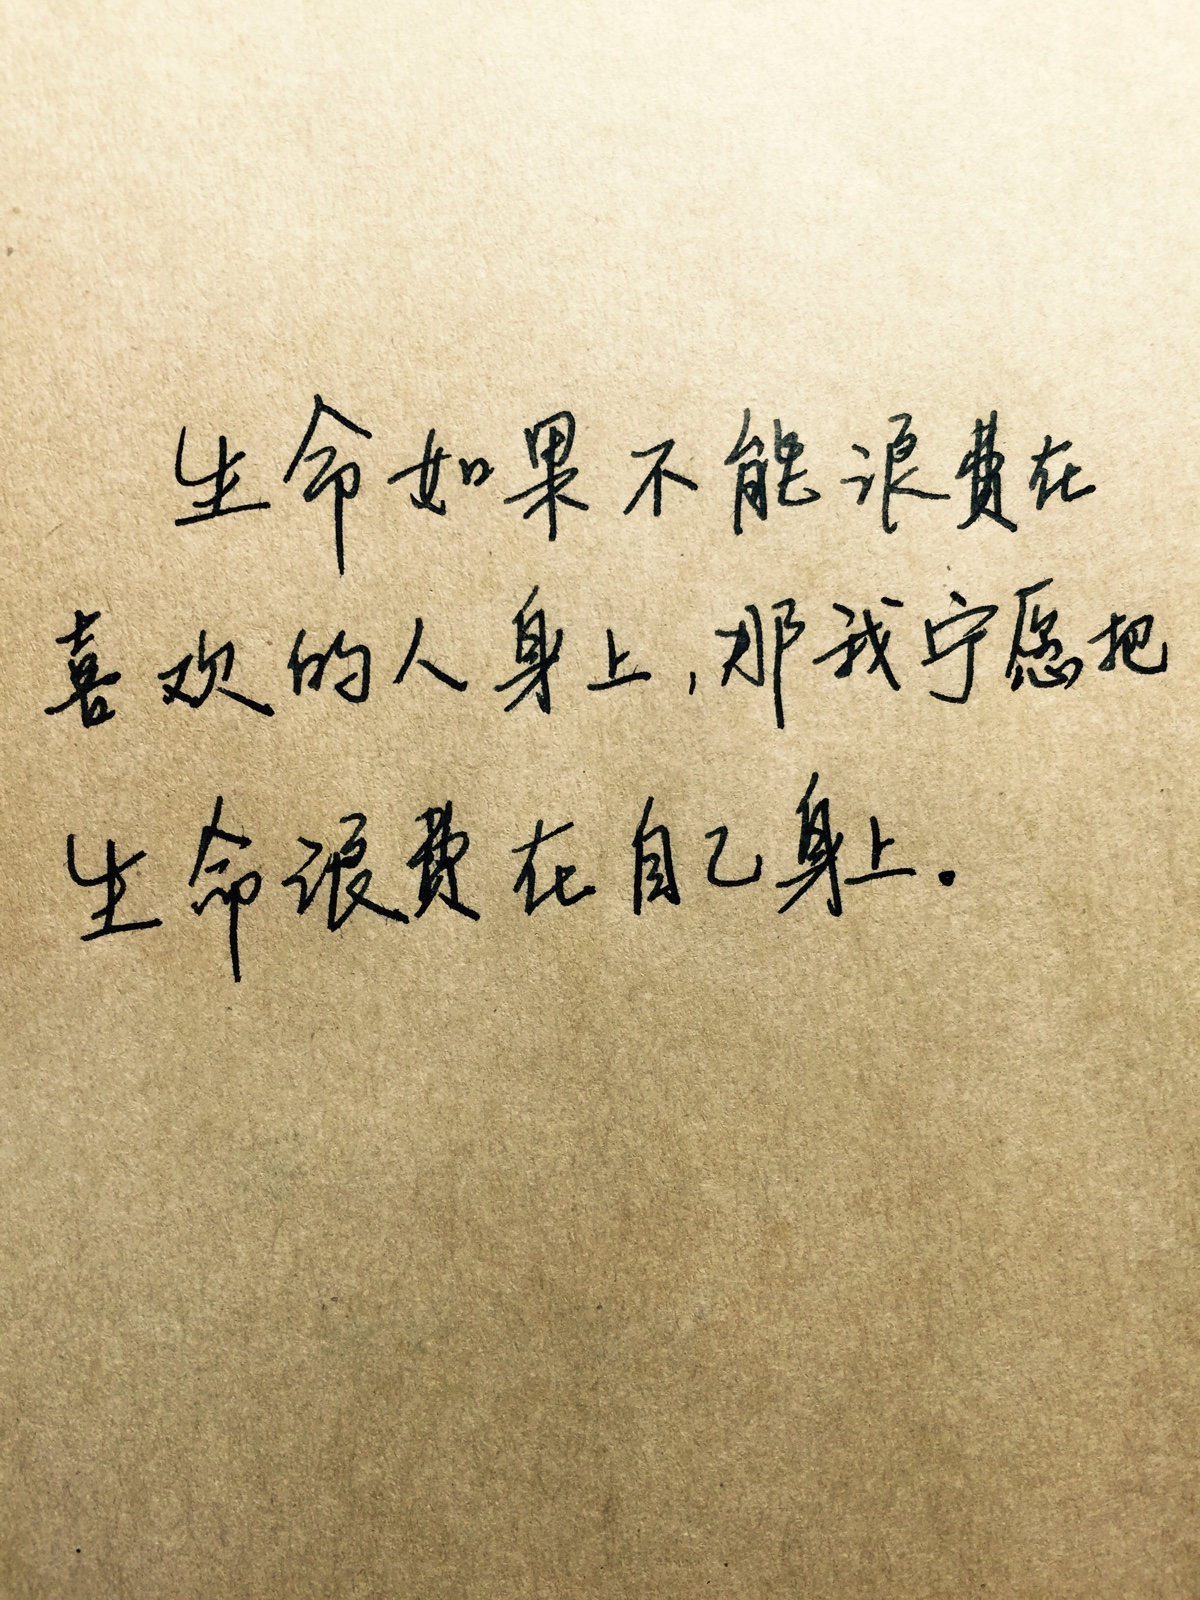 生命如果不能浪费在
喜欢的人身上,那我宁愿把
生命浪费在自己身上.